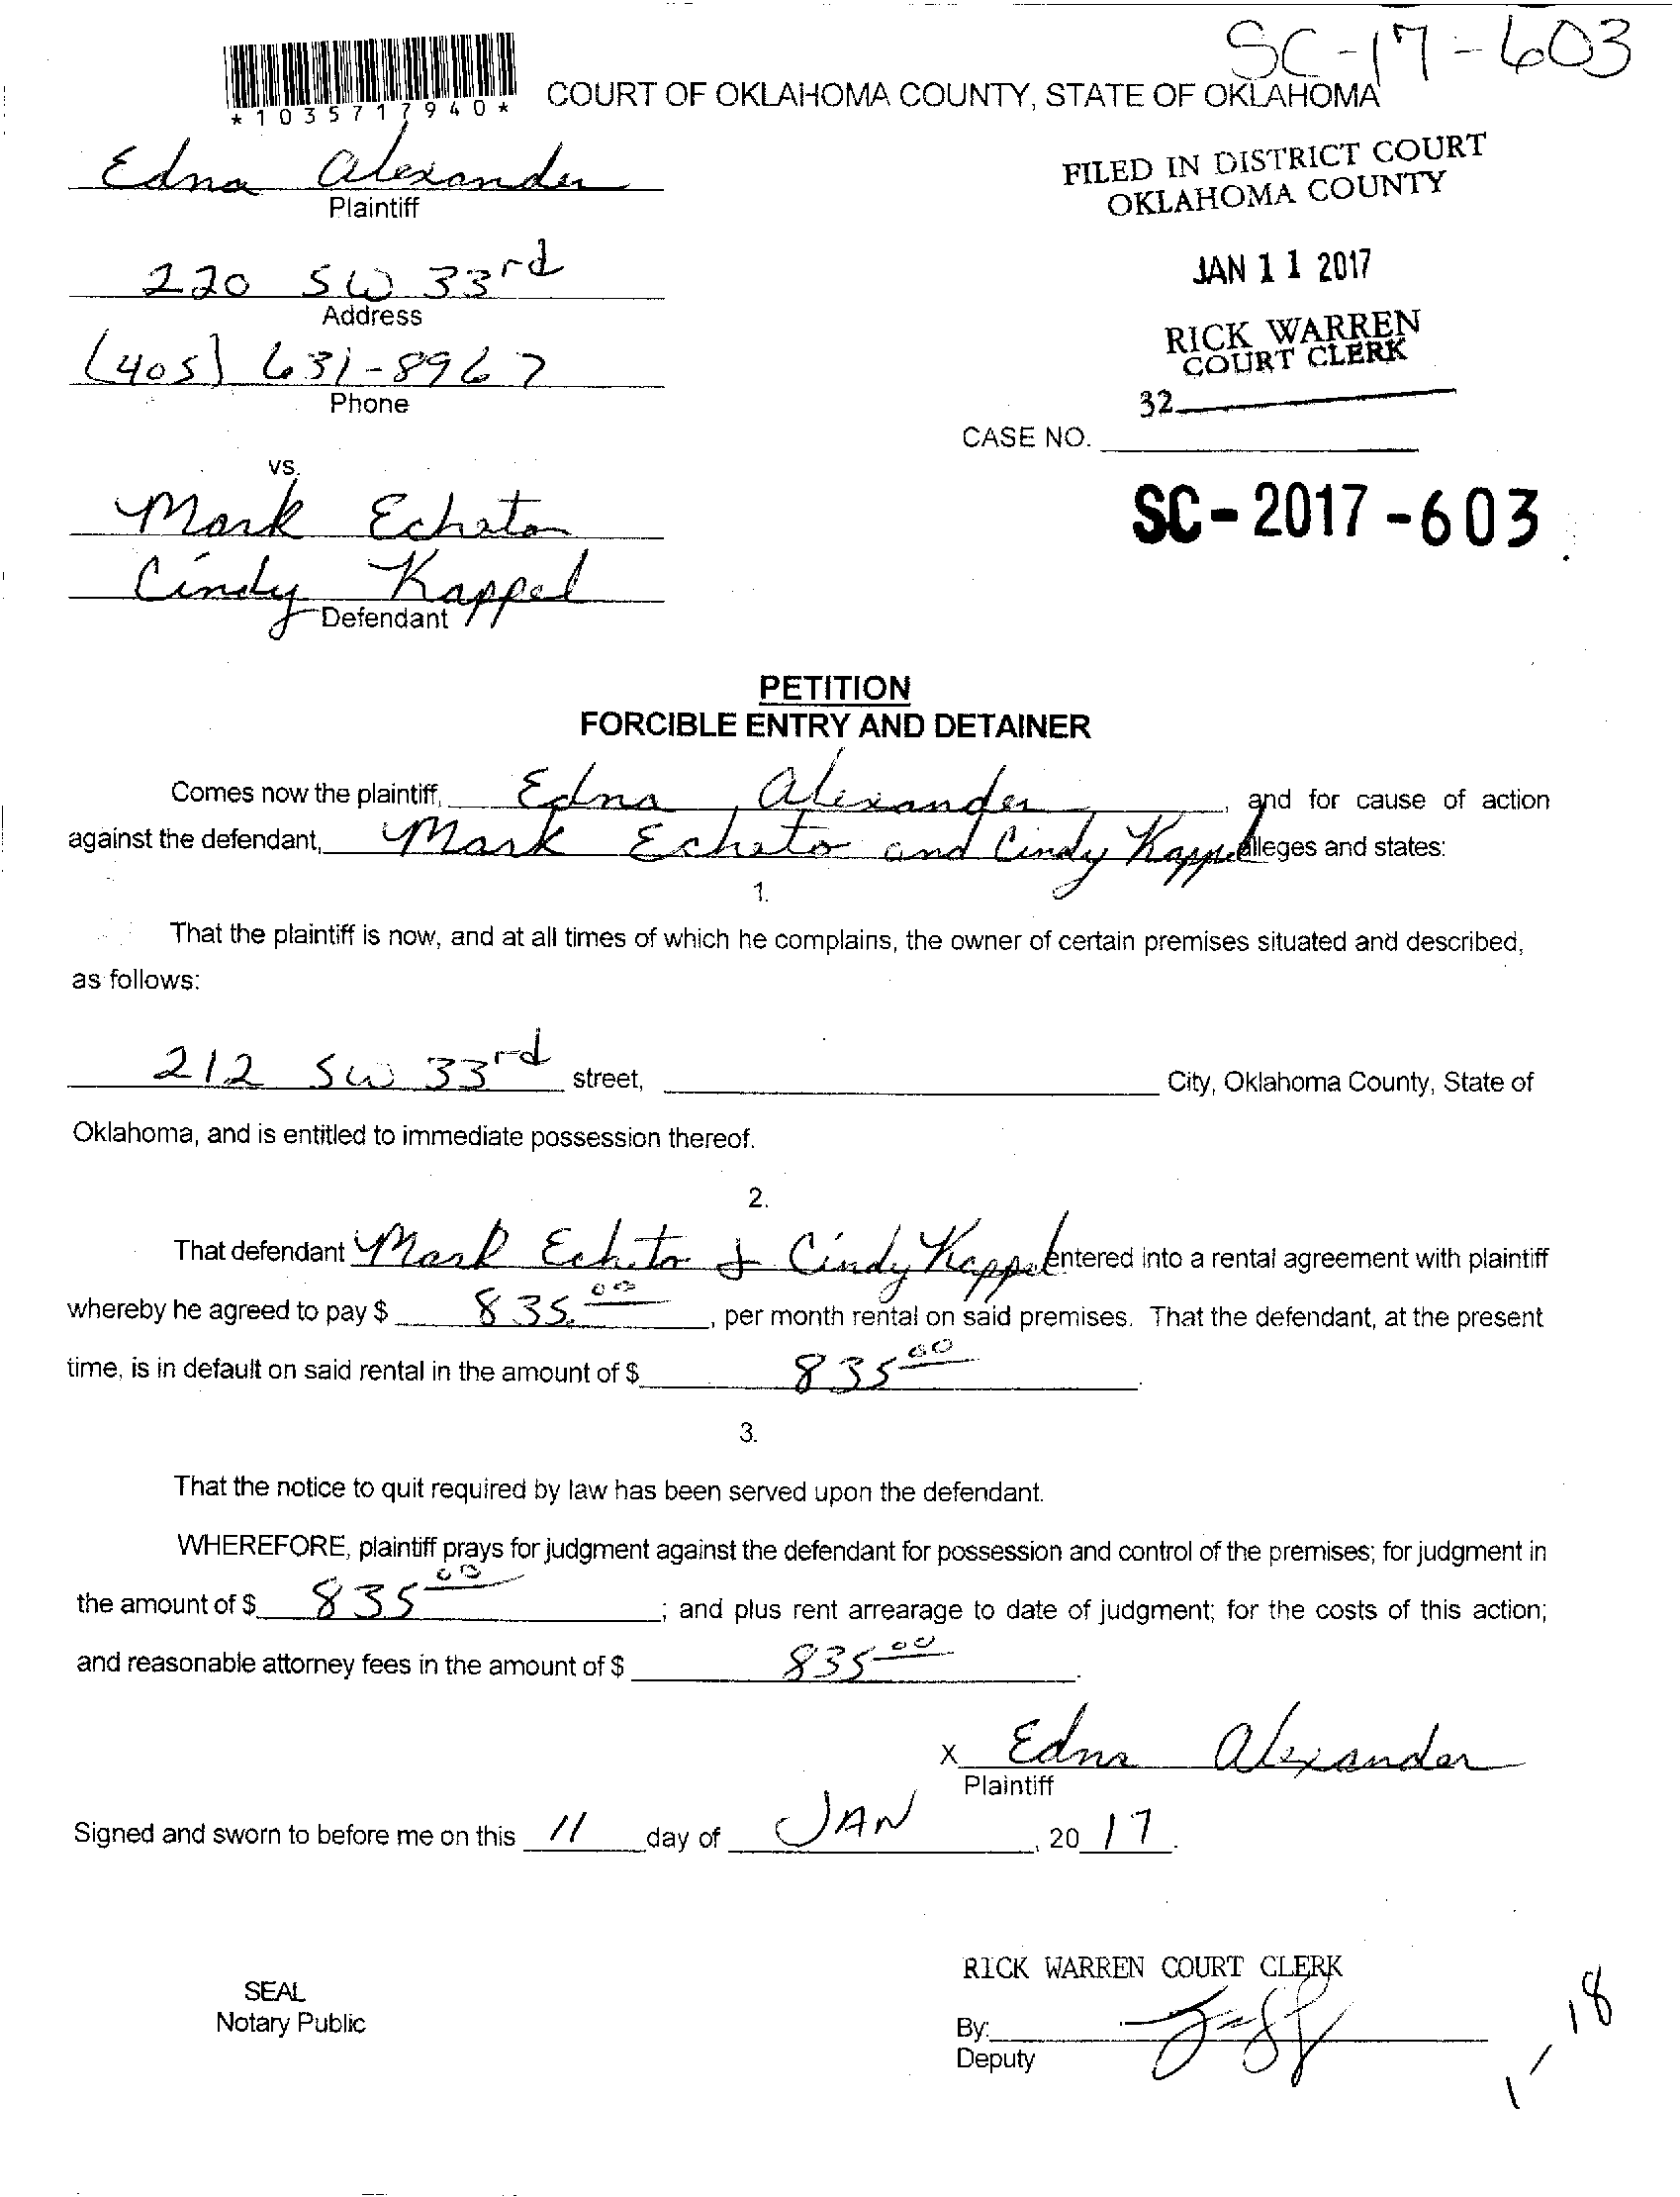 SC-17-603
*1035717940*
COURT OF OKLAHOMA COUNTY, STATE OF OKLAHOMA
Edna Alexander
Plaintiff
FILED IN DISTRICT COURT
OKLAHOMA COUNTY
220 SW 33rd
Address
JAN 11 2017
(405) 631-8967
Phone
RICK WARREN
COURT CLERK
32
CASE NO.
vs.
Mark Echeto
Cindy Kappel
Defendant
SC-2017-603
PETITION
FORCIBLE ENTRY AND DETAINER
Comes now the plaintiff, Edna Alexander, and for cause of action
against the defendant, Mark Echeto and Cindy Kappel alleges and states:
1.
That the plaintiff is now, and at all times of which he complains, the owner of certain premises situated and described,
as follows:
212 SW 33rd street, City, Oklahoma County, State of
Oklahoma, and is entitled to immediate possession thereof.
2.
That defendant Mark Echeto & Cindy Kappel entered into a rental agreement with plaintiff
whereby he agreed to pay $ 835.00, per month rental on said premises. That the defendant, at the present
time, is in default on said rental in the amount of $ 835 00.
3.
That the notice to quit required by law has been served upon the defendant.
WHEREFORE, plaintiff prays for judgment against the defendant for possession and control of the premises; for judgment in
the amount of $ 835 00; and plus rent arrearage to date of judgment; for the costs of this action;
and reasonable attorney fees in the amount of $ 835 00.
x Edna Alexander
Plaintiff
Signed and sworn to before me on this 11 day of JAN, 20 17.
RICK WARREN COURT CLERK
SEAL
Notary Public
By:
Deputy
1-18